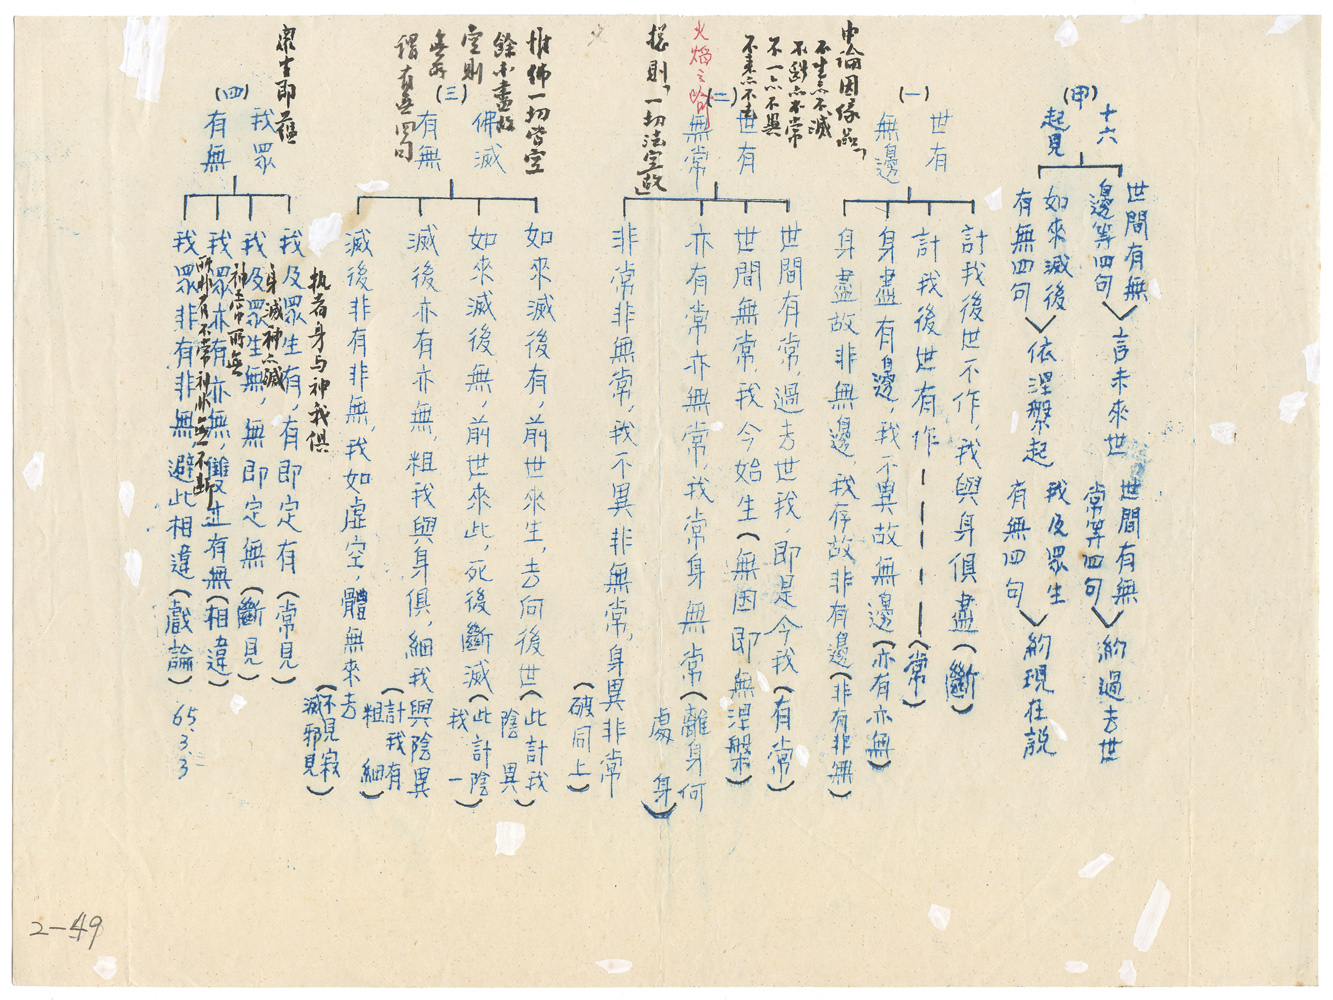 (甲)
十六
起見
世間有無
邊等四句
言未來世
世間有無
常等四句
約過去世
如來滅後
有無四句
依涅槃起
我及眾生
有無四句
約現在說
中論因緣品，
不生亦不滅
不斷亦不常
不一亦不異
不來亦不去
(一)
世有
無邊
計我後世不作，我與身俱盡(斷)
計我後世有作(常)
身盡有邊，我不異故無邊(亦有亦無)
身盡故非無邊，我存故非有邊(非有非無)
(二)
世有
無常
火焰之喻
總則，一切法空故
世間有常，過去世我，即是今我(有常)
世間無常，我今始生(無因即無涅槃)
亦有常亦無常，我常身無常(離身何處身)
非常非無常，我不異非無常，身異非常
(破同上)
(三)
佛滅
有無
惟佛一切皆空
餘未盡故
空則
無所
謂有無四句
如來滅後有，前世來生，去何後世(此計我陰異)
如來滅後無，前世來此，死後斷滅(此計陰我一)
滅後亦有亦無，粗我與身俱，細我與陰異
(計我有粗細)
滅後非有非無，我如虛空，體無來去
(不見寂滅邪見)
(四)
我眾
有無
眾生即蘊
執者身与神我俱
我及眾生有，有即定有(常見)
身滅神亦滅
我及眾生無，無即定無(斷見)
神
我眾亦有亦無，雙並有無(相違)
我眾非有非無，避此相違(戲論)
65.3.3
2-49